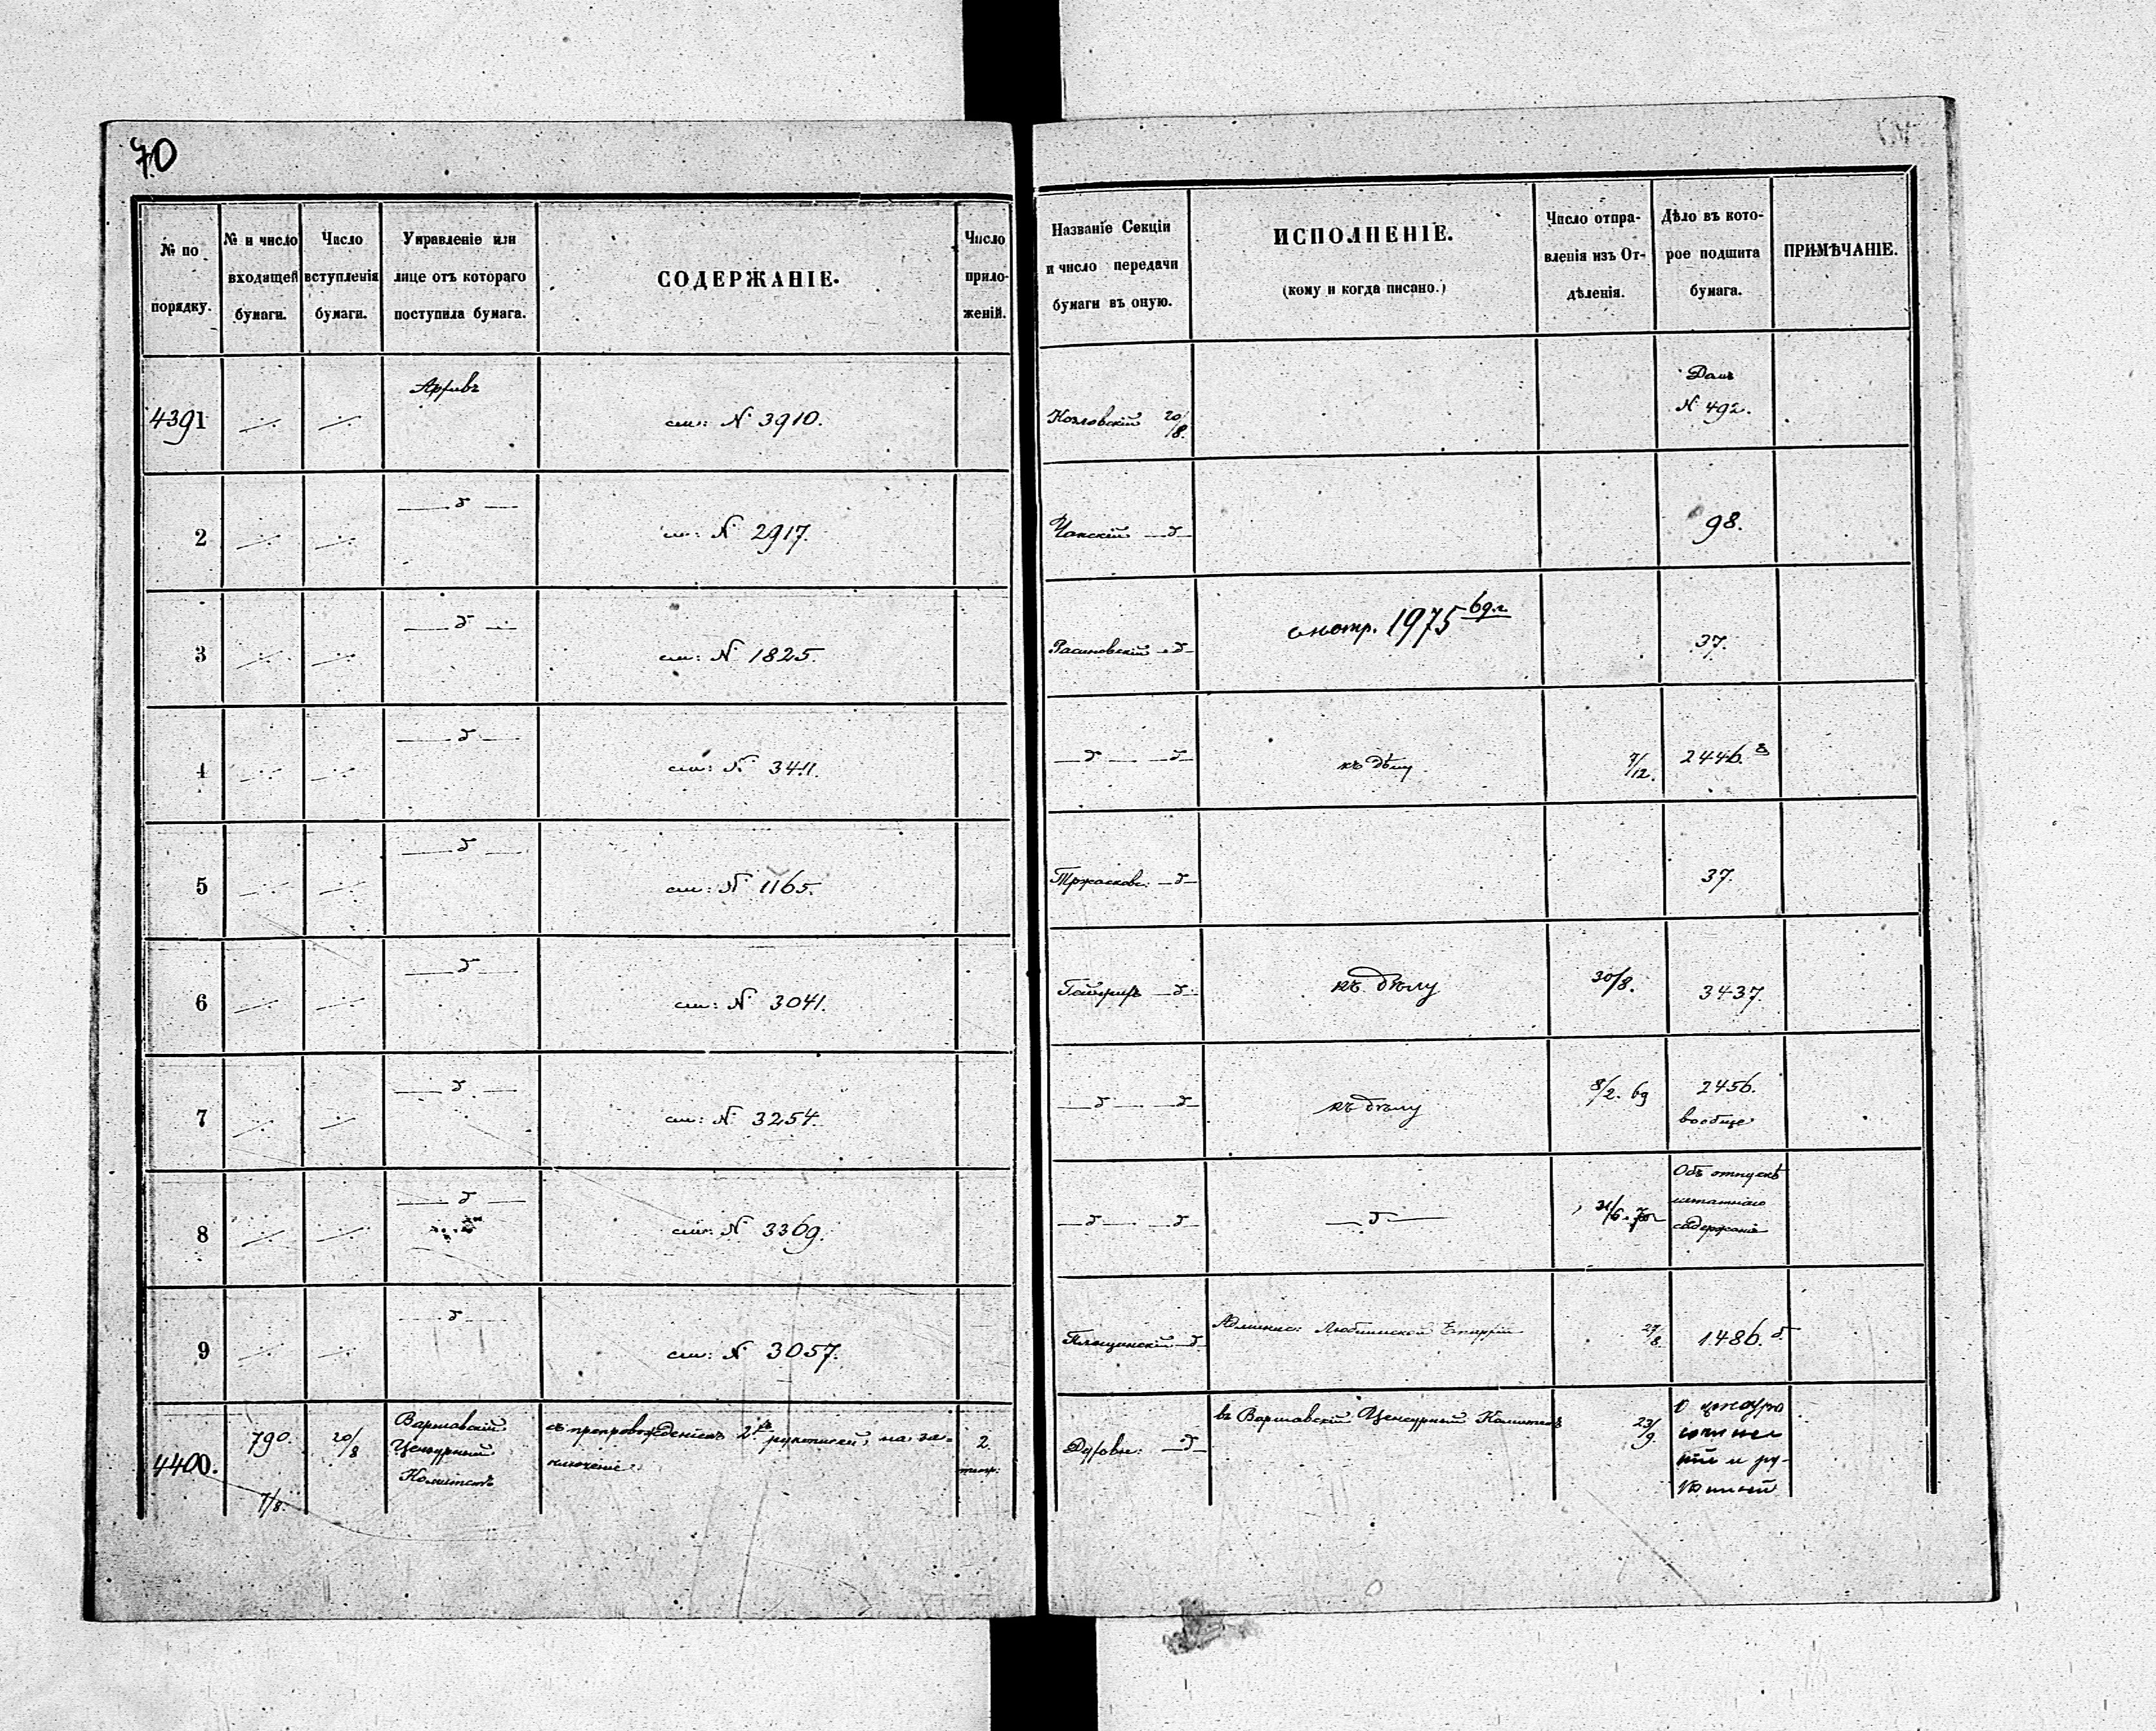 70
№ по порядку.
№ и число входящей бумаги.
Число вступленія бумаги.
Управленіе или лице отъ котораго поступила бумага.
СОДЕРЖАНІЕ.
Число приложеній.
Названіе Секціи и число передачи бумаги въ оную.
ИСПОЛНЕНІЕ.
(кому и когда писано.)
Число отправленія изъ Отдѣленія.
Дѣло въ которое подшита бумага.
ПРИМѢЧАНІЕ.
4391 Архивъ см: № 3910. Козловскій 20/8. № 492.
2 см: № 2917. 98.
3 см: № 1825. смотр. 1975 69.г 37.
4 см: № 3411. къ дѣлу 7/12. 2446.
5 см: № 1165. 37.
6 см: № 3041. къ дѣлу 30/8. 3437.
7 см: № 3254. къ дѣлу 8/2. 69 2456.
вообще
8 см: № 3369. Объ отпускѣ
штатнаго
содержанія
9 см: № 3057. Площинскій Админис: Люблинской Епархіи 27/8. 1486.
4400. 790. 7/8. 20/8
Варшавскій
Цензурный
Комитетъ
съ препровожденіемъ 2хъ рукописей, на за-
ключеніе.
2.
Духовн:
въ Варшавскій Цензурный Комитетъ
23/9.
О цензурѣ